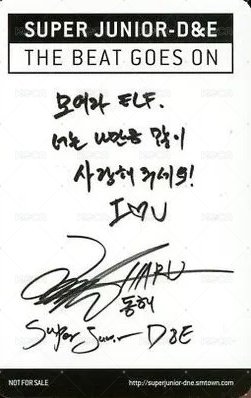 SUPER JUNIOR-D&E
THE BEAT GOES ON
모여라 ELF.
만큼 많이
사랑해 주세요!
I♡U
HARU
동해
Super Junior D&E
NOT FOR SALE
http://superjunior-dne.smtown.com